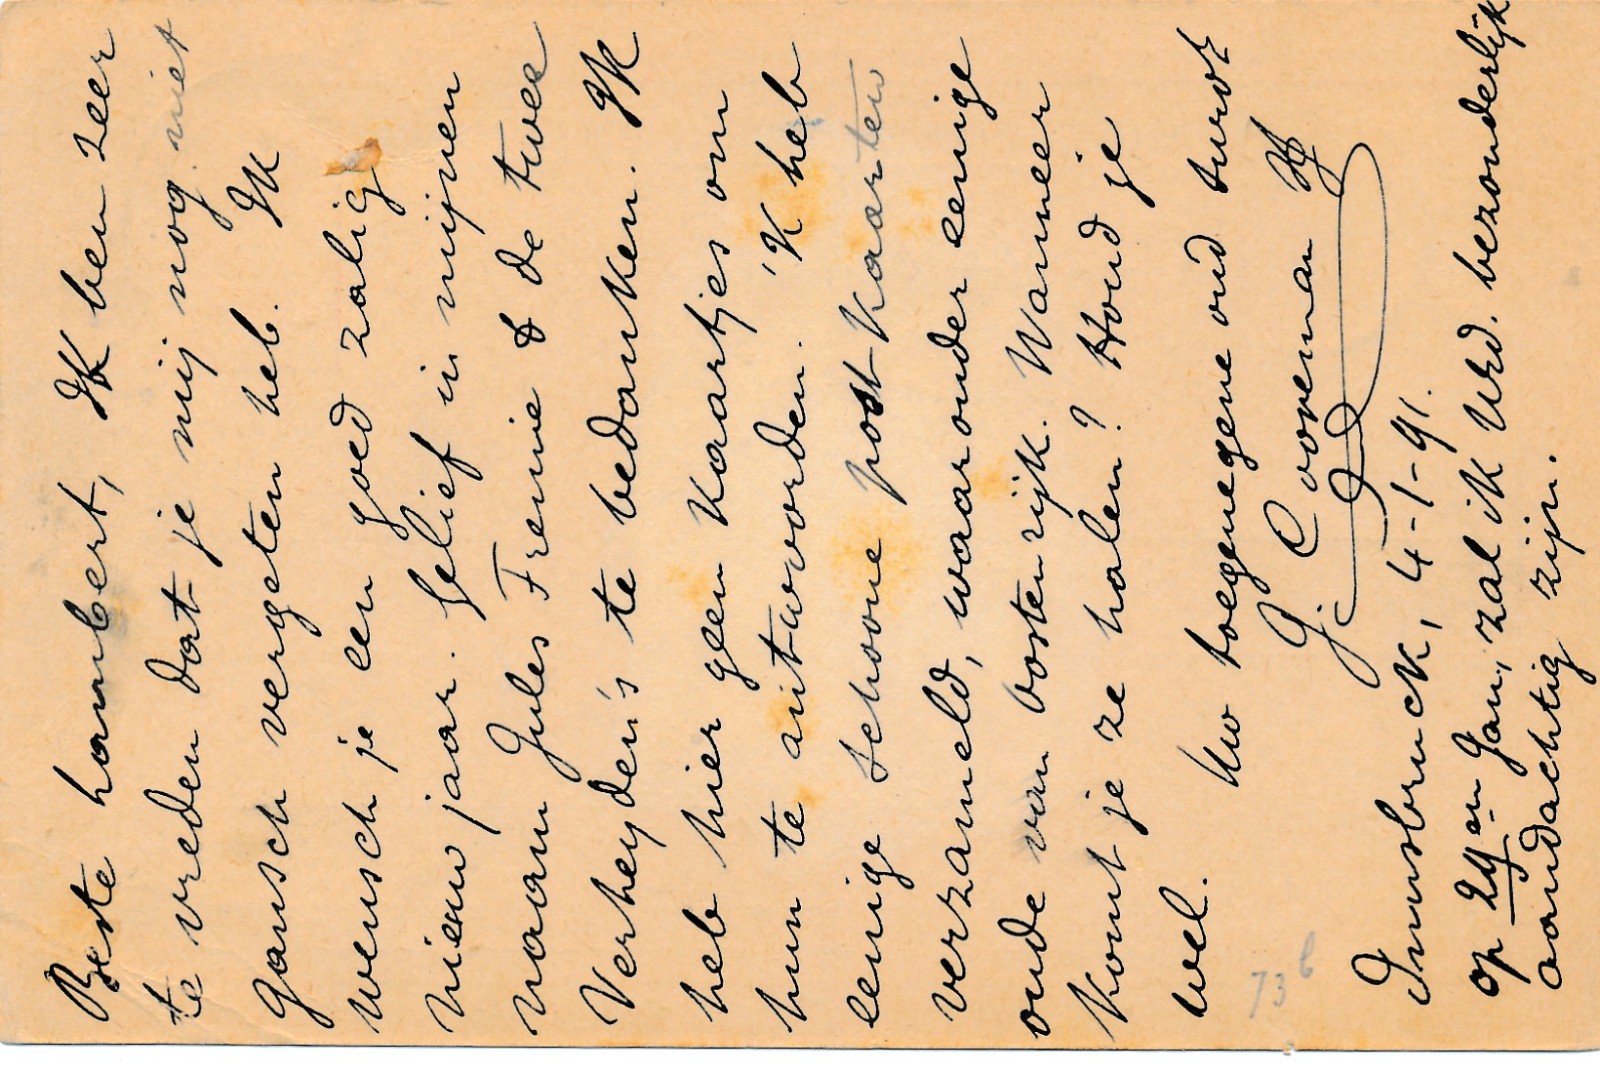 Beste Lambert, Ik ben zeer
te vreden dat je mij nog niet
gansch vergeten heb. Ik
wensch je een goed zalig
nieuw jaar. Gelief in mijnen
naam Jules Frenie & de twee
Verheyden's te bedanken. Ik
heb hier geen kaartjes om
hun te antwoorden. 'K heb
eenige schoone post-kaarten
verzameld, waaronder eenige
oude van oostenrijk. Wanneer
komt je ze halen? Houd je
wel.
Uw toegenegene oud turot
J. Cooreman
Innsbruck, 4-1-91.
op 29en Jan, zal ik Ued. bezonderlijk
aandachtig zijn.
73 b